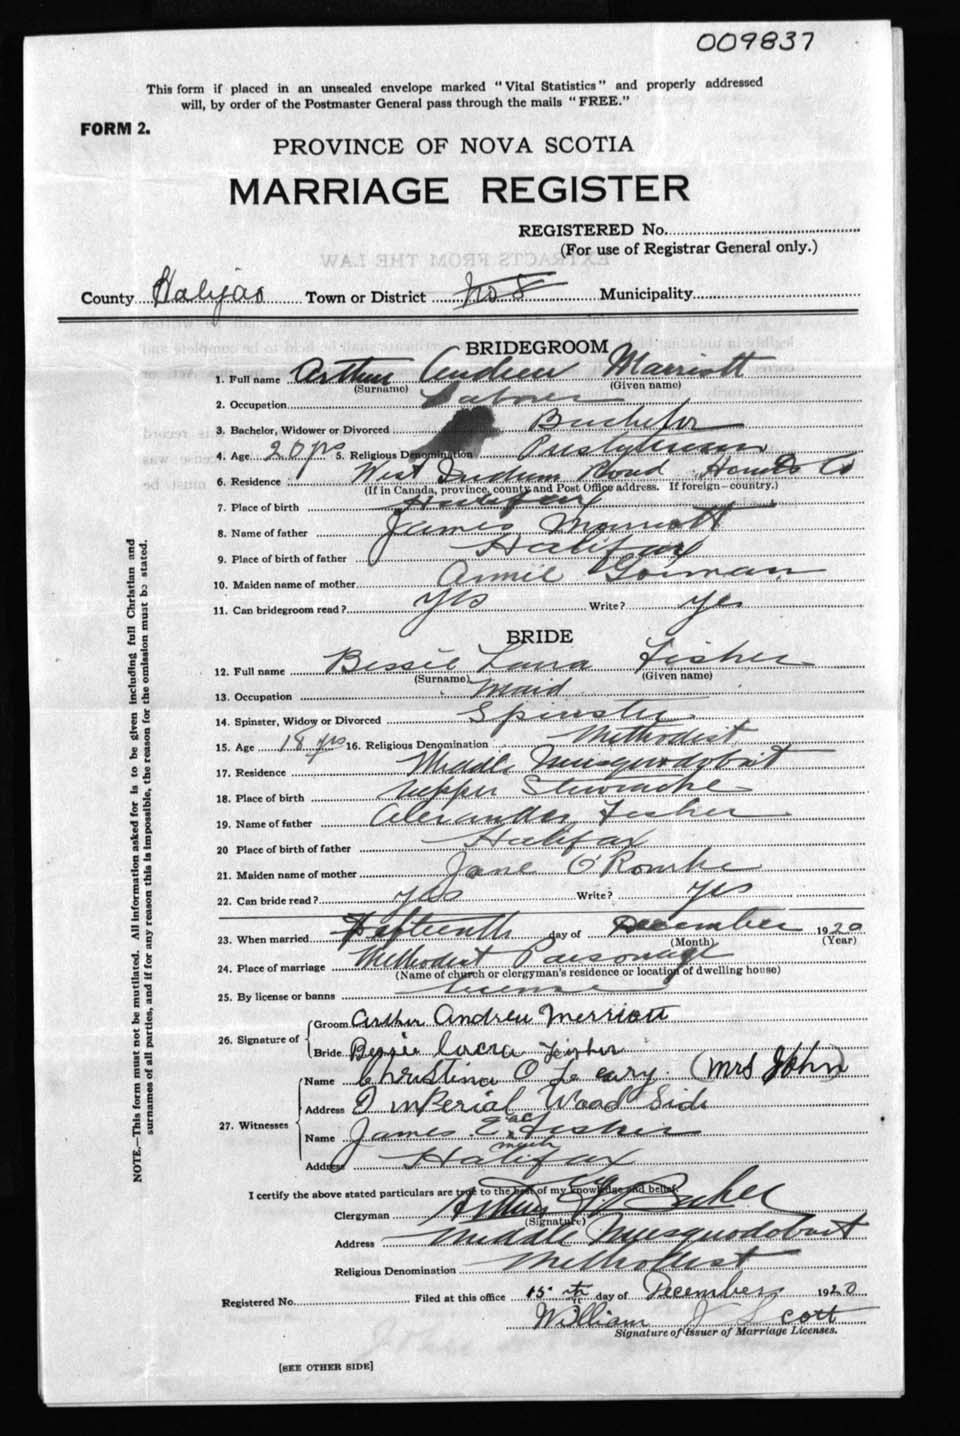 009837
This form if placed in an unsealed envelope marked "Vital Statistics" and properly addressed
will, by order of the Postmaster General pass through the mails "FREE."
FORM 2.
PROVINCE OF NOVA SCOTIA
MARRIAGE REGISTER
REGISTERED No.
(For use of Registrar General only.)
EXTRACTS FROM THE LAW
County Halifax Town or District No 8 Municipality
BRIDEGROOM
1. Full name Arthur Andrew Marriott
(Surname) (Given name)
2. Occupation Laborer
3. Bachelor, Widower or Divorced Bachelor
4. Age 20 yrs 5. Religious Denomination Presbyterian
6. Residence West Indian Road Hants Co
(If in Canada, province, county and Post Office address. If foreign—country.)
7. Place of birth Halifax
8. Name of father James Marriott
9. Place of birth of father Halifax
10. Maiden name of mother Annie Gorman
11. Can bridegroom read? yes Write? yes
BRIDE
12. Full name Bessie Laura Fisher
(Surname) (Given name)
13. Occupation Maid
14. Spinster, Widow or Divorced Spinster
15. Age 18 yrs 16. Religious Denomination Methodist
17. Residence Middle Musquodoboit
18. Place of birth Upper Stewiacke
19. Name of father Alexander Fisher
20 Place of birth of father Halifax
21. Maiden name of mother Jane O'Rourke
22. Can bride read? yes Write? yes
23. When married Fifteenth day of December 1920
(Month) (Year)
24. Place of marriage Methodist Parsonage
(Name of church or clergyman's residence or location of dwelling house)
25. By license or banns license
26. Signature of Groom Arthur Andrew Merriott
Bride Bessie Lacra Fisher
27. Witnesses Name Christina O Leary. (Mrs John)
Address Imperial Wood Side
Name James E. Fisher
Address Halifax
I certify the above stated particulars are true to the best of my knowledge and belief.
Clergyman Arthur
(Signature)
Address Middle Musquodoboit
Religious Denomination Methodist
Registered No. Filed at this office 15th day of December 1920
William J Scott
Signature of Issuer of Marriage Licenses.
[SEE OTHER SIDE]
NOTE.—This form must not be mutilated. All information asked for is to be given including full Christian and
surnames of all parties, and if for any reason this is impossible, the reason for the omission must be stated.